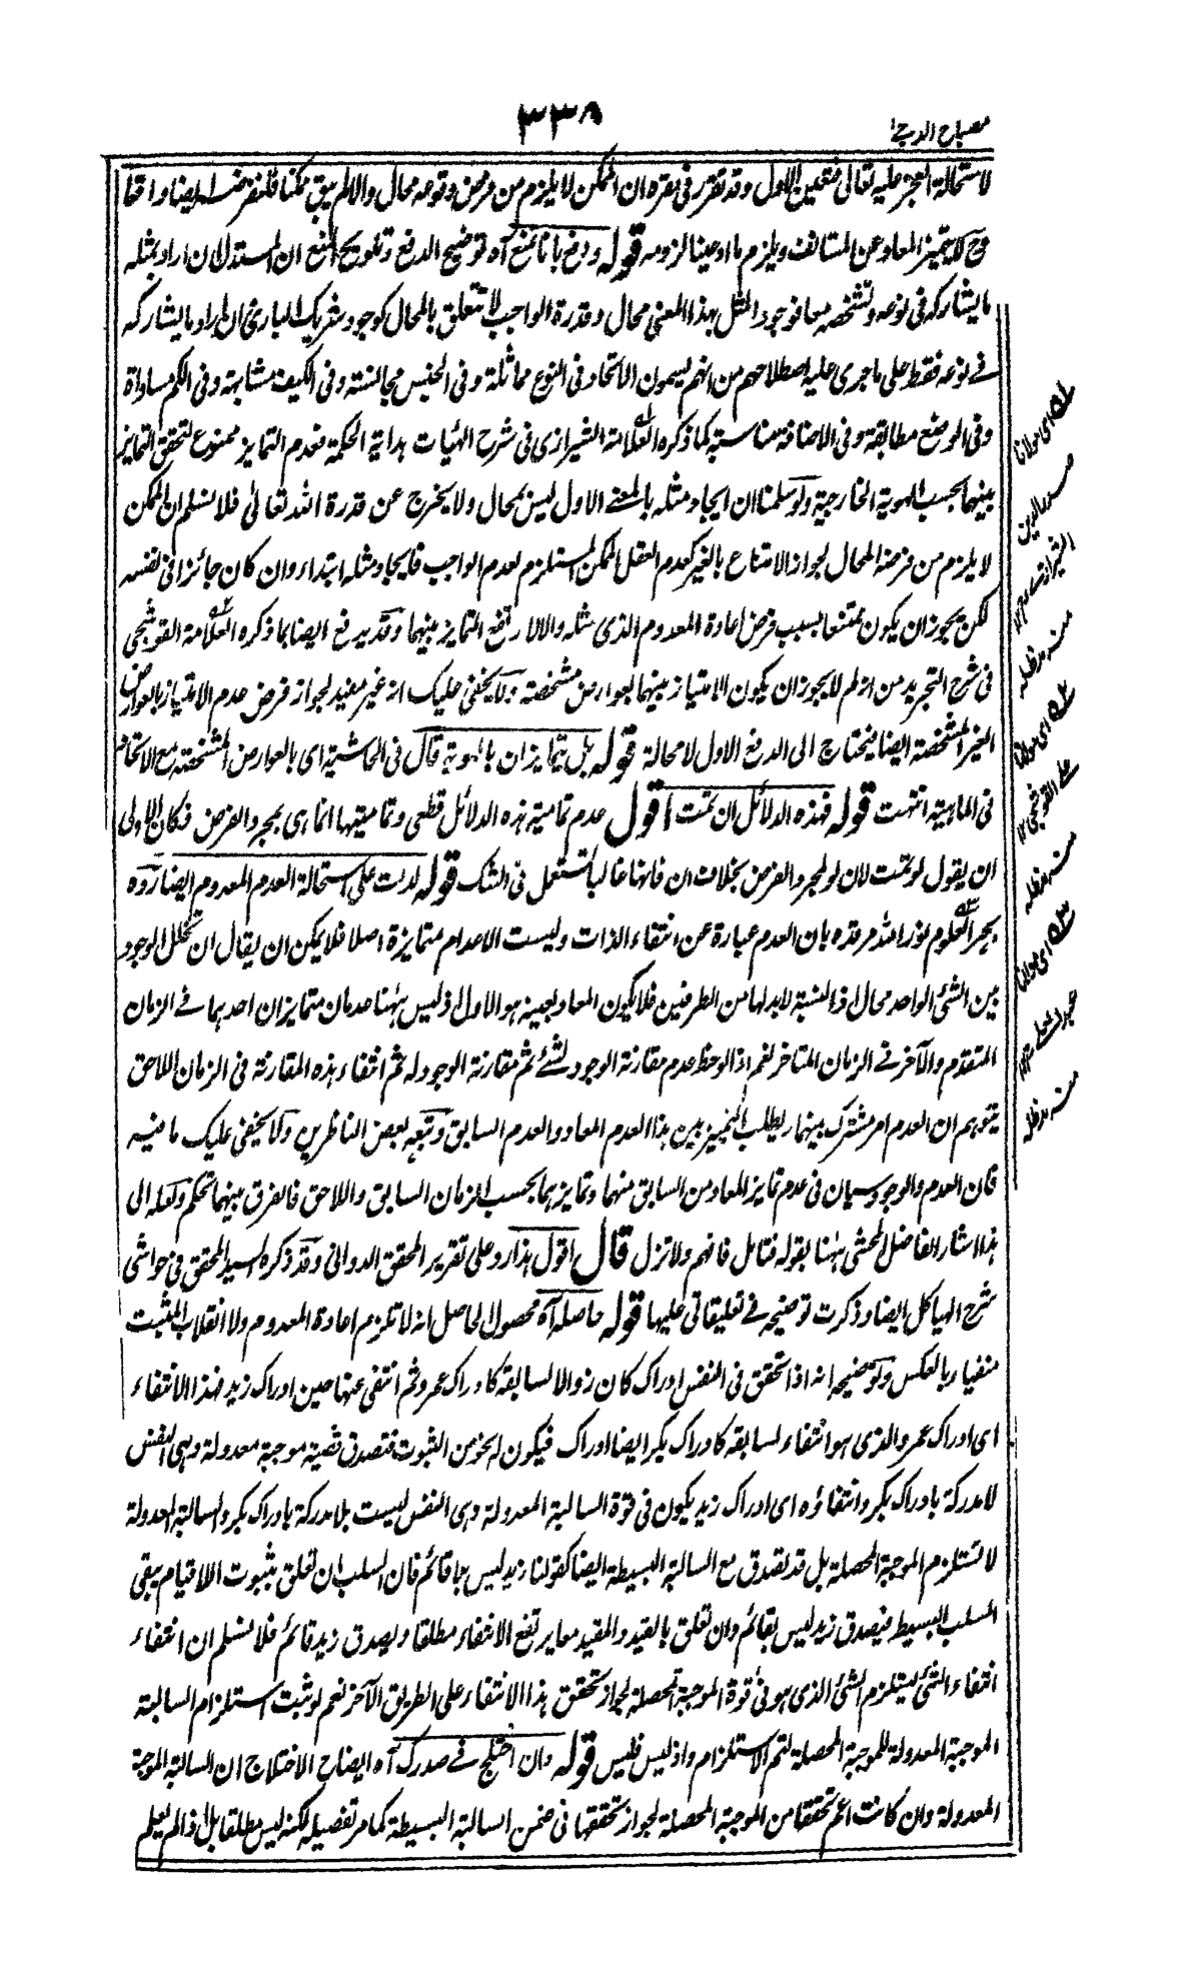 مصباح الدجى
٣٣٨
لاستحالة العجز عليه تعالى فتعين الاول وقد تقرر فى مقره ان الممكن لا يلزم من فرض وقوعه محال والا لم يبق ممكنا فلنفرضه ايضا واقعا
وح لا يتميز المعاد عن المستانف ويلزم ما ادعينا لزومه قوله ودفع بانا نمنع آه توضيح الدفع وتلويح المنع ان المستدل ان اراد بمثله
ما يشاركه فى نوعه وتشخصه معا فوجود المثل بهذا المعنى محال وقدرة الواجب لا تتعلق بالمحال كوجود شريك البارى وان اراد ما يشاركه
فى نوعه فقط على ما جرى عليه اصطلاحهم من انهم يسمون الاتحاد فى النوع مماثلة وفى الجنس مجانسة وفى الكيف مشابهة وفى الكم مساواة
وفى الوضع مطابقة وفى الاضافة مناسبة كما ذكره العلامة الشيرازى فى شرح الهيات هداية الحكمة فعدم التمايز ممنوع لتحقق التمايز
بينهما بحسب الهوية الخارجية ولو سلمنا ان ايجاد مثله بالمعنى الاول ليس بمحال ولا يخرج عن قدرة الله تعالى فلا نسلم ان الممكن
لا يلزم من فرضه المحال لجواز الامتناع بالغير كعدم العقل الممكن المستلزم لعدم الواجب فايجاد مثله ابتداء وان كان جائزا فى نفسه
لكن يجوز ان يكون ممتنعا بسبب فرض اعادة المعدوم الذى مثله والا لارتفع التمايز بينهما وقد يدفع ايضا بما ذكره العلامة القوشجى
فى شرح التجريد من انه لم لا يجوز ان يكون الامتياز بينهما بعوارض مشخصة ولا يخفى عليك انه غير مفيد لجواز فرض عدم الامتياز بالعوارض
الغير المشخصة ايضا فيحتاج الى الدفع الاول لا محالة قوله بل يتمايزان بالهوية قال فى الحاشية اى بالعوارض المشخصة مع الاتحاد
فى الماهية انتهت قوله فهذه الدلائل ان تمت اقول عدم تمامية هذه الدلائل قطعى وتماميتها انما هى بمجرد الفرض فكان الاولى
ان يقول لو تمت لان لو لمجرد الفرض بخلاف ان فانها غالبا تستعمل فى الشك قوله لدلت على استحالة العدم المعدوم ايضا رده
بحر العلوم نور الله مرقده بان العدم عبارة عن انتفاء الذات وليست الاعدام متمايزة اصلا فلا يمكن ان يقال ان تخلل الوجود
بين الشئ الواحد محال اذ النسبة لا بد لها من الطرفين فلا يكون المعاد بعينه هو الاول اذ ليس ههنا عدمان متمايزان احدهما فى الزمان
المتقدم والآخر فى الزمان المتاخر نعم اذا لوحظ عدم مقارنة الوجود لشئ ثم مقارنة الوجود له ثم انتفاء هذه المقارنة فى الزمان اللاحق
يتوهم ان العدم امر مشترك بينهما يطلب التمييز بين هذا العدم المعاد والعدم السابق وتبعه بعض الناظرين ولا يخفى عليك ما فيه
فان العدم والوجود سيان فى عدم تمايز المعاد من السابق منهما وتمايزهما بحسب الزمان السابق واللاحق فالفرق بينهما تحكم ولعله الى
هذا اشار الفاضل المحشى ههنا بقوله فتامل فافهم ولا تزل قال اقول هذا رد على تقرير المحقق الدوانى وقد ذكره السيد المحقق فى حواشى
شرح الهياكل ايضا وذكرت توضيحه فى تعليقاتى عليها قوله حاصله آه محصول الحاصل انه لا تلزم اعادة المعدوم ولا انقلاب المثبت
منفيا وبالعكس وتوضيحه انه اذا تحقق فى النفس ادراك كان زوالا لسابقه كادراك عمرو ثم انتفى عنها حين ادراك زيد فهذا الانتفاء
اى ادراك عمرو الذى هو انتفاء لسابقه كادراك بكر ايضا ادراك فيكون له نحو من الثبوت فتصدق قضية موجبة معدولة وهى النفس
لا مدركة بادراك بكر وانتفاؤه اى ادراك زيد يكون فى قوة السالبة المعدولة وهى النفس ليست بلا مدركة بادراك بكر والسالبة المعدولة
لا تستلزم الموجبة المحصلة بل قد تصدق مع السالبة البسيطة ايضا كقولنا زيد ليس بلا قائم فان السلب ان تعلق بثبوت اللاقيام يبقى
السلب البسيط فيصدق زيد ليس بقائم وان تعلق بالقيد والمقيد معا يرتفع الانتفاء مطلقا ويصدق زيد قائم فلا نسلم ان انتفاء
انتفاء الشئ يستلزم الشئ الذى هو فى قوة الموجبة المحصلة لجواز تحقق هذا الانتفاء على الطريق الآخر نعم لو ثبت استلزام السالبة
الموجبة المعدولة للموجبة المحصلة لتم الاستلزام واذ ليس فليس قوله وان اختلج فى صدرك آه ايضاح الاختلاج ان السالبة الموجبة
المعدولة وان كانت اعم تحققا من الموجبة المحصلة لجواز تحققها فى ضمن السالبة البسيطة كما مر تفصيله لكنه ليس مطلقا بل اذا لم يعلم
اى مولانا
صدر الدين
الشيرازى
منه مد ظله
اى مولانا
على القوشجى ١٢
منه مد ظله
اى مولانا
عبد العلى
منه مد ظله